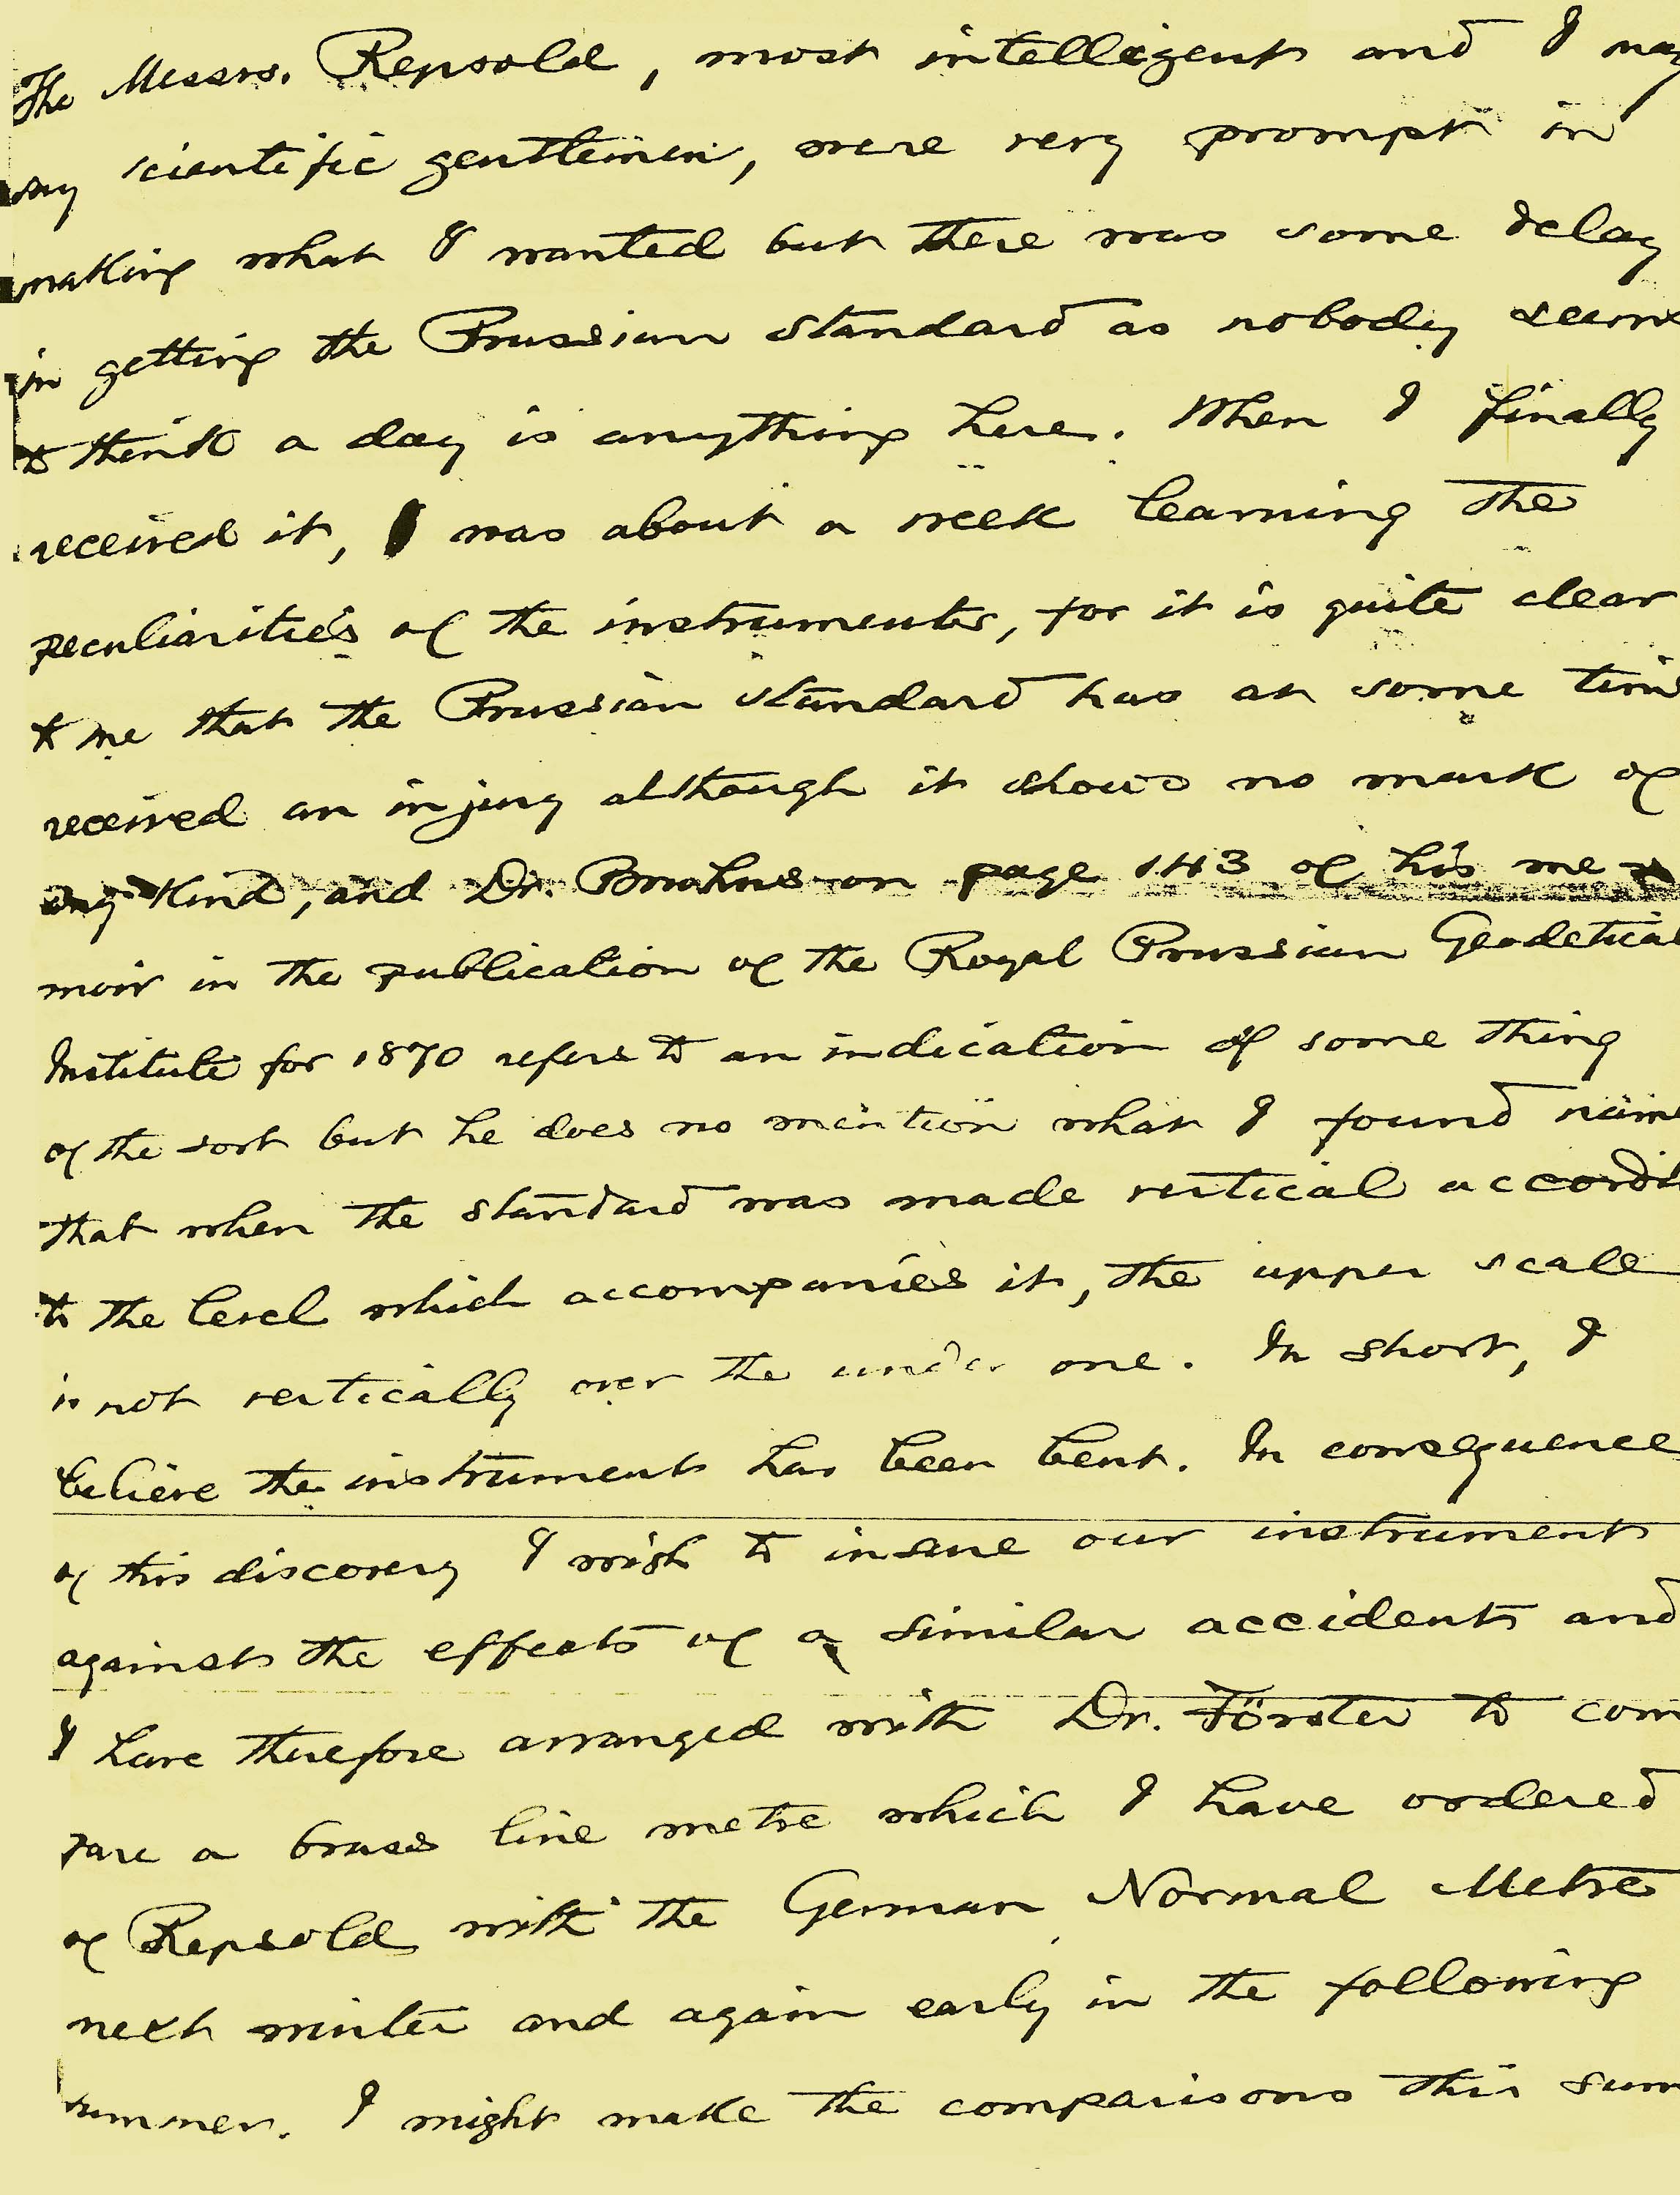 The Messrs. Repsold, most intelligent and I may
say scientific gentlemen, were very prompt in
making what I wanted but there was some delay
in getting the Prussian standard as nobody seems
to think a day is anything here. When I finally
received it, I was about a week learning the
peculiarities of the instruments, for it is quite clear
to me that the Prussian standard has at some time
received an injury although it shows no mark of
any kind, and Dr. Bruhns on page 143 of his me
moir in the publication of the Royal Prussian Geodetical
Institute for 1870 refers to an indication of some thing
of the sort but he does no mention what I found
that when the standard was made vertical
to the level which accompanies it, the upper scale
is not vertically over the under one. In short, I
believe the instrument has been bent. In consequence
of this discovery I wish to insure our instrument
against the effects of a similar accident and
I have therefore arranged with Dr. Förster to com
pare a brass line metre which I have ordered
of Repsold with the German Normal Metre
next winter and again early in the following
summer. I might make the comparisons this sum